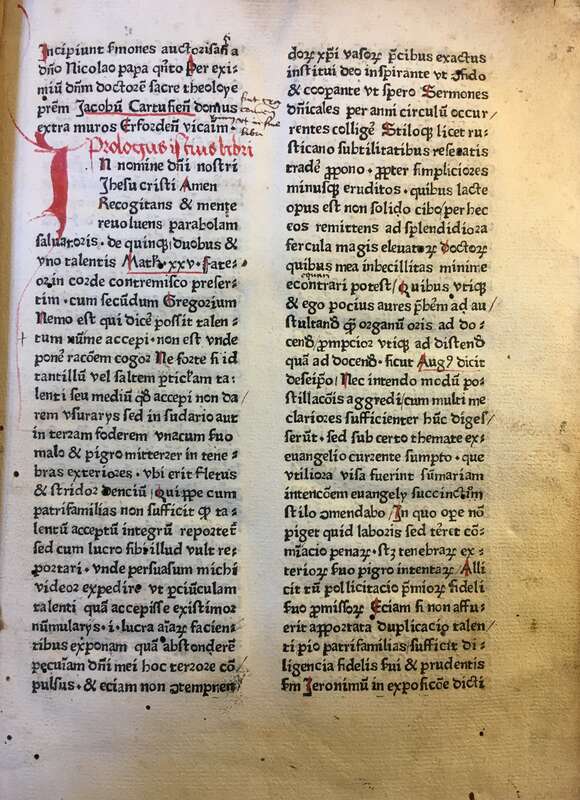 Incipiunt s̄mones auctorisati a
dño Nicolao papa qn̄to Per exi-
miū dñm doctorē sacre theologye
prēm Jacobū Cartusieñ domus
extra muros Erfordeñ vicaim ·
Prologus istius libri
In nomine dñi nostri
Jhesu cristi Amen
Recogitans & mente
reuoluens parabolam
saluatoris · de quinq; duobus &
vno talentis Math̓ · xxv · fate-
or in corde contremisco preser-
tim · cum secūdum Gregorium
Nemo est qui dicē possit talen-
tum nūme accepi · non est vnde
ponē racōem cogor Ne forte si id
tantillū vel saltem pticl̓am ta-
lenti seu mediū qd̓ accepi non da/
rem vsurarys sed in sudario aut
in terram foderem vnacum suo
malo & pigro mitterer in tene-
bras exteriores · vbi erit fletus
& stridor denciū / Quippe cum
patrifamilias non sufficit qd̓ ta-
lentū acceptū integrū reportet̓
sed cum lucro sibi illud vult re-
portari · vnde persuasum michi
videor expedire vt pciūculam
talenti quā accepisse existimor
nūmularys · i · lucra aīaꝝ facien-
tibus exponam quā abstonderē
pecuiam dñi mei hoc terrore cō/
pulsus · & eciam non ɔtempnen/
doꝝ xp̄i vasoꝝ p̄cibus exactus
institui deo inspirante vt ɔfido
& coopante vt spero Sermones
dn̄icales per anni circulū occur/
rentes colligē Stiloq; licet ru-
sticano subtilitatibus resecatis
tradē ꝓpono · ꝓpter simpliciores
minusq; eruditos · quibus lacte
opus est non solido cibo / per hec
eos remittens ad splendidiora
fercula magis eleuatoꝝ doctoꝝ
quibus mea inbecillitas minime
equari
econtrari potest / Quibus vtiq;
& ego pocius aures p̄bēm ad au/
stultand̓ qꝫ organū oris ad do-
cend̓ ꝓmpcior vtiq; ad discend̓
quā ad docend̓ · sicut Augꝰ dicit
deseip̄o / Nec intendo modū po-
stillacōis aggredi / cum multi me
clariores sufficienter hūc diges/
serūt · sed sub certo themate ex-
euangelio currente sumpto · que
vtiliora visa fuerint sūmariam
intencōem euangely succinctim
stilo ɔmendabo / In quo ope nō
piget quid laboris sed tēret cō-
mīacio penaꝝ · stꝫ tenebraꝝ ex-
terioꝝ suo pigro intentaꝝ / Alli
cit tn̄ pollicitacio p̄mioꝝ fideli
suo ꝓmissoꝝ Eciam si non affu-
erit apportata duplicacio talen/
ti pio patrifamilias / sufficit di-
ligencia fidelis sui & prudentis
sm̄ Jeronimū in exposicōe dicti